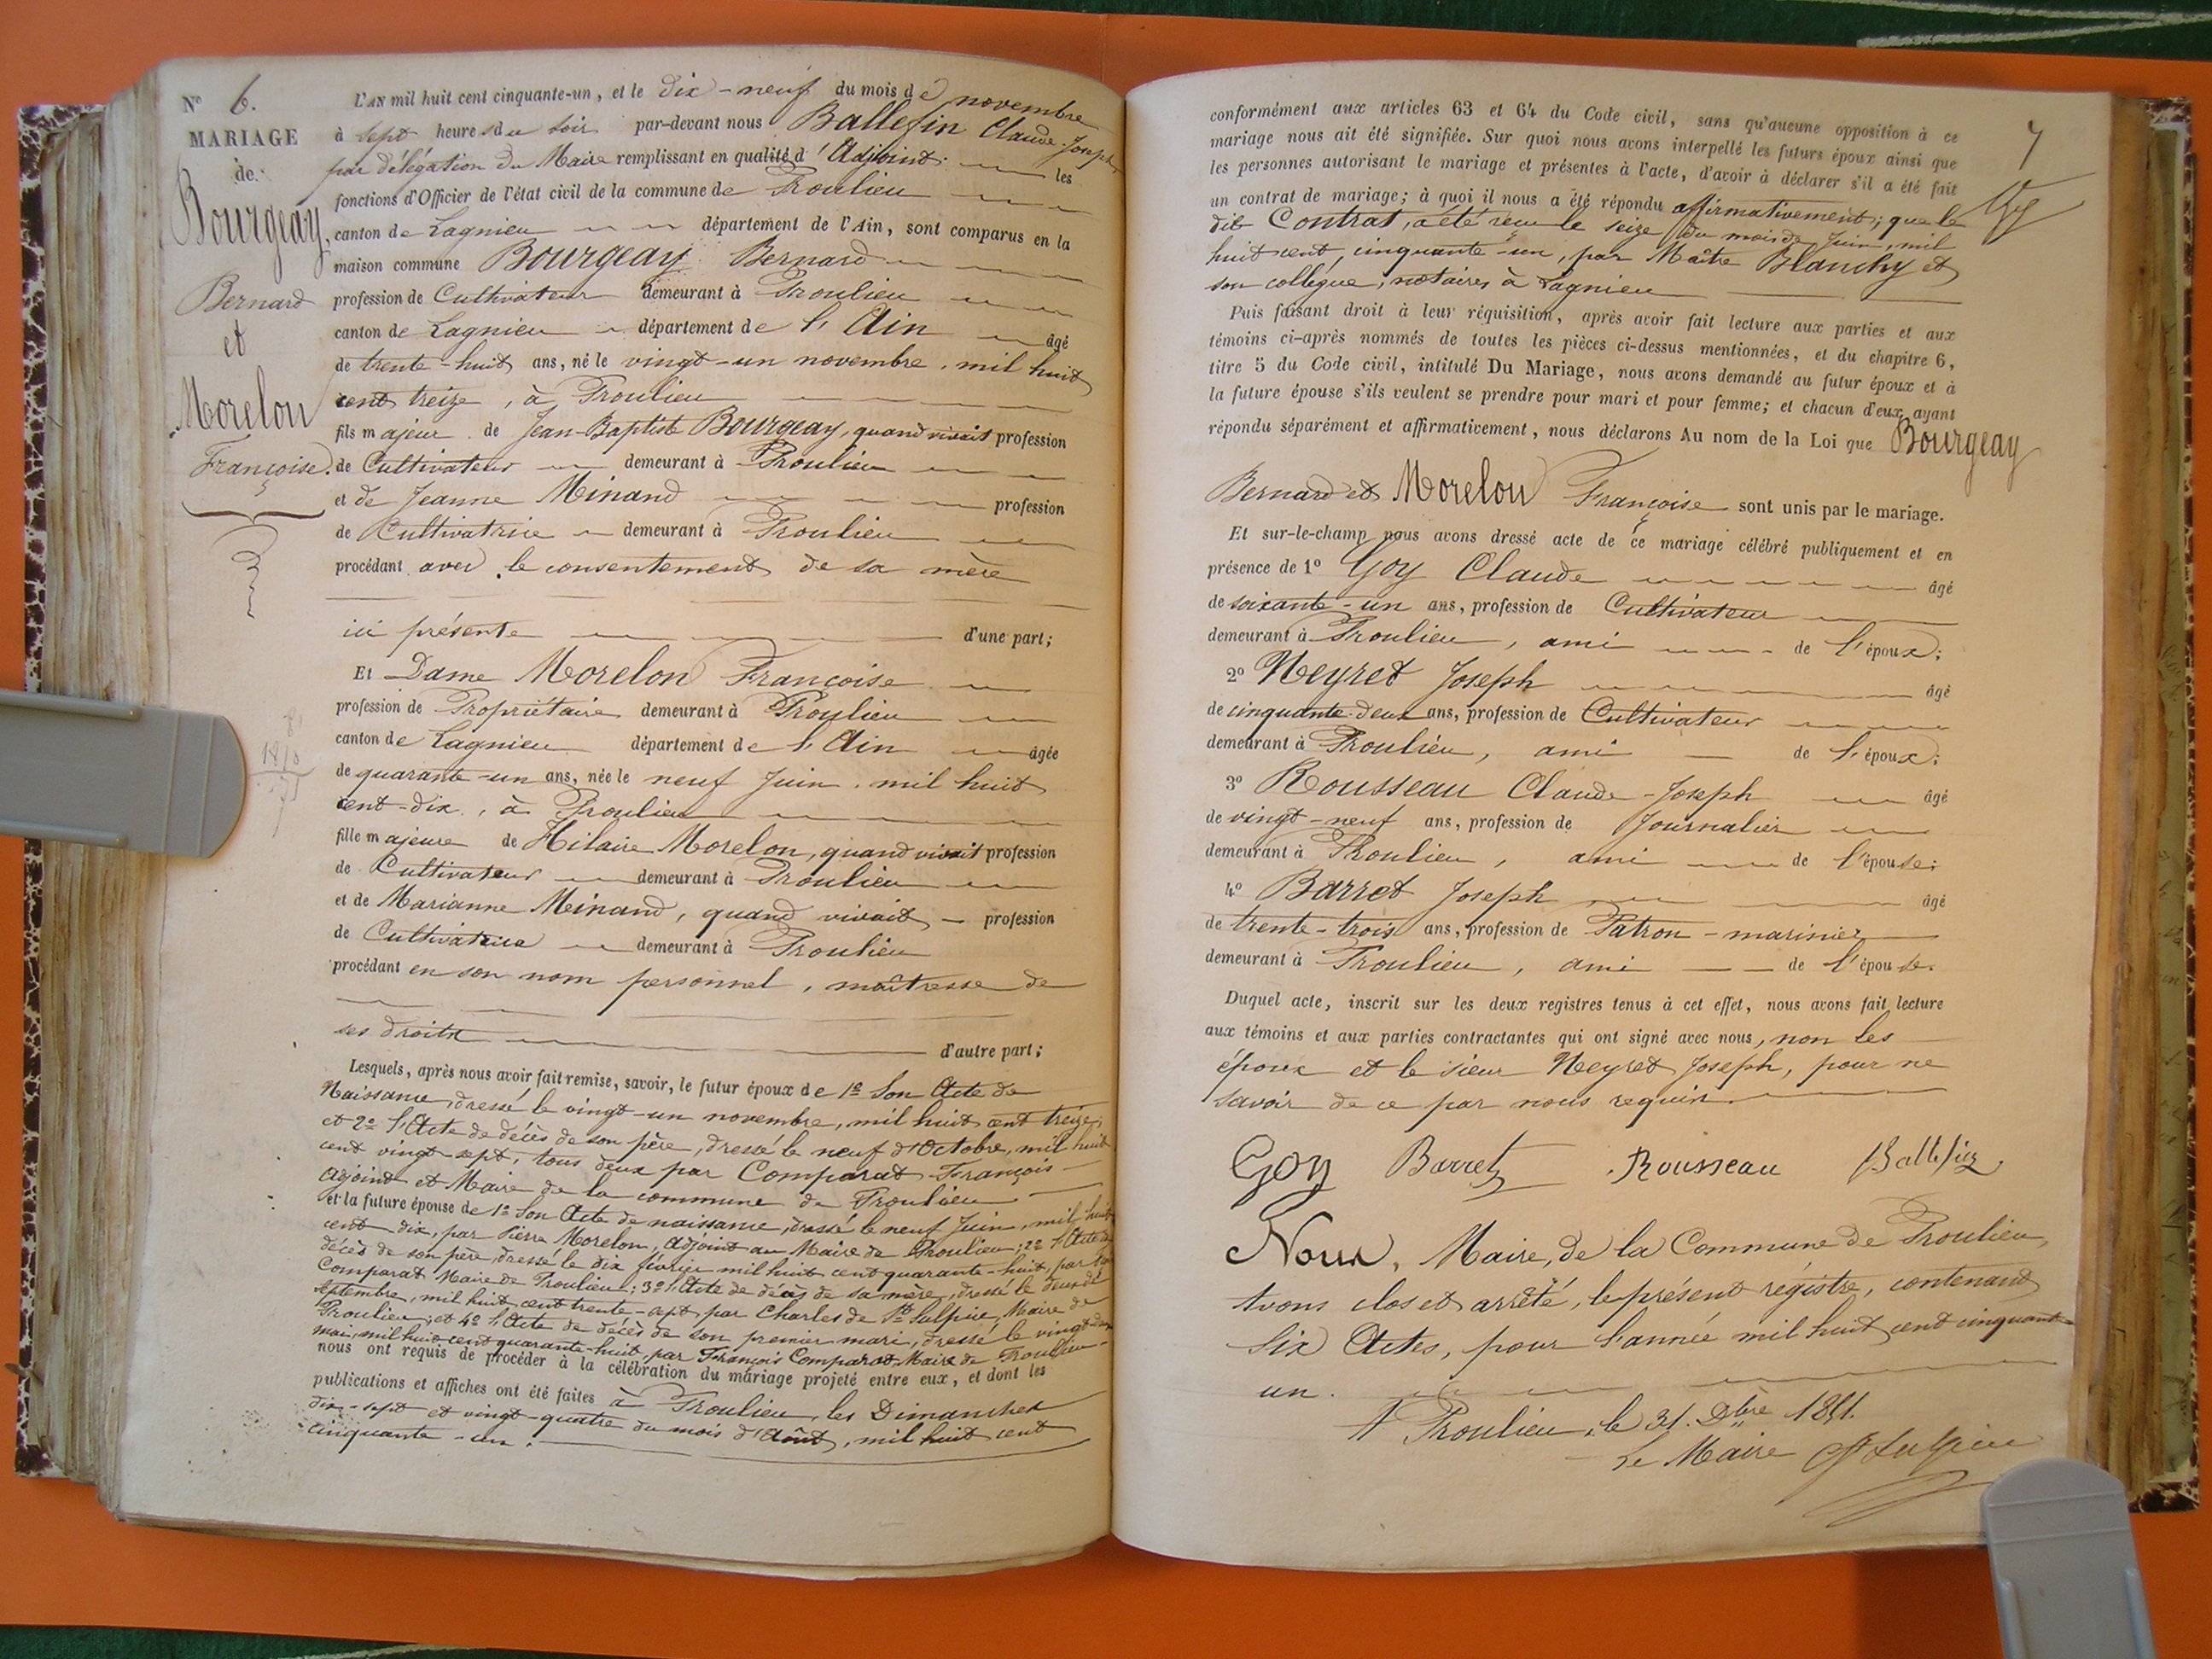 N° 6.
MARIAGE
de
Bourgeay,
Bernard
et
Morelon
Françoise.
L'AN mil huit cent cinquante-un, et le dix-neuf du mois de novembre
à sept heures du soir par-devant nous Ballefin Claude-Joseph
par délégation du Maire remplissant en qualité d'Adjoint les
fonctions d'Officier de l'état civil de la commune de Proulieu
canton de Lagnieu département de l'Ain, sont comparus en la
maison commune Bourgeay Bernard
profession de Cultivateur demeurant à Proulieu
canton de Lagnieu département de l'Ain âgé
de trente-huit ans, né le vingt-un novembre, mil huit
cent treize, à Proulieu
fils majeur de Jean-Baptiste Bourgeay, quand vivait profession
de Cultivateur demeurant à Proulieu
et de Jeanne Minand profession
de Cultivatrice demeurant à Proulieu
procédant avec le consentement de sa mère
ici présente d'une part;
Et Dame Morelon Françoise
profession de Propriétaire demeurant à Proulieu
canton de Lagnieu département de l'Ain âgée
de quarante-un ans, née le neuf Juin, mil huit
cent-dix, à Proulieu
fille majeure de Hilaire Morelon, quand vivait profession
de Cultivateur demeurant à Proulieu
et de Marianne Minand, quand vivait profession
de Cultivatrice demeurant à Proulieu
procédant en son nom personnel, maîtresse de
ses droits d'autre part;
Lesquels, après nous avoir fait remise, savoir, le futur époux de 1° Son Acte de
Naissance, dressé le vingt-un novembre, mil huit cent treize;
et 2° l'Acte de décès de son père, dressé le neuf d'Octobre, mil huit
cent vingt-sept, tous deux par Comparat François
Adjoint et Maire de la commune de Proulieu
et la future épouse de 1° Son Acte de naissance, dressé le neuf Juin, mil huit
cent dix, par Pierre Morelon, Adjoint au Maire de Proulieu; 2° l'Acte de
décès de son père, dressé le dix février mil huit cent quarante-huit, par
Comparat Maire de Proulieu; 3° l'Acte de décès de sa mère, dressé le deux de
Septembre, mil huit cent trente-sept, par Charles de St Sulpice, Maire de
Proulieu; et 4° l'Acte de décès de son premier mari, dressé le vingt-deux
mai, mil huit cent quarante-huit, par François Comparat Maire de Proulieu
nous ont requis de procéder à la célébration du mariage projeté entre eux, et dont les
publications et affiches ont été faites à Proulieu, les Dimanches
dix-sept et vingt-quatre du mois d'Août, mil huit cent
cinquante-un.
7
conformément aux articles 63 et 64 du Code civil, sans qu'aucune opposition à ce
mariage nous ait été signifiée. Sur quoi nous avons interpellé les futurs époux ainsi que
les personnes autorisant le mariage et présentes à l'acte, d'avoir à déclarer s'il a été fait
un contrat de mariage; à quoi il nous a été répondu affirmativement; que le
dit Contrat, a été reçu le seize du mois de Juin, mil
huit cent, cinquante-un, par Maître Blanchy et
son collègue, notaires à Lagnieu
Puis faisant droit à leur réquisition, après avoir fait lecture aux parties et aux
témoins ci-après nommés de toutes les pièces ci-dessus mentionnées, et du chapitre 6,
titre 5 du Code civil, intitulé Du Mariage, nous avons demandé au futur époux et à
la future épouse s'ils veulent se prendre pour mari et pour femme; et chacun d'eux ayant
répondu séparément et affirmativement, nous déclarons Au nom de la Loi que Bourgeay
Bernard et Morelon Françoise sont unis par le mariage.
Et sur-le-champ nous avons dressé acte de ce mariage célébré publiquement et en
présence de 1° Goy Claude âgé
de soixante-un ans, profession de Cultivateur
demeurant à Proulieu, ami de l'époux;
2° Neyret Joseph âgé
de cinquante-deux ans, profession de Cultivateur
demeurant à Proulieu, ami de l'époux;
3° Rousseau Claude-Joseph âgé
de vingt-neuf ans, profession de Journalier
demeurant à Proulieu, ami de l'épouse;
4° Barret Joseph âgé
de trente-trois ans, profession de Patron-marinier
demeurant à Proulieu, ami de l'épouse.
Duquel acte, inscrit sur les deux registres tenus à cet effet, nous avons fait lecture
aux témoins et aux parties contractantes qui ont signé avec nous, non les
époux et le sieur Neyret Joseph, pour ne
savoir de ce par nous requis.
Goy Barret Rousseau Ballefin
Nous, Maire, de la Commune de Proulieu,
avons clos et arrêté, le présent régistre, contenant
Six Actes, pour l'année mil huit cent cinquante
un.
A Proulieu, le 31. Dbre 1851.
Le Maire St Sulpice